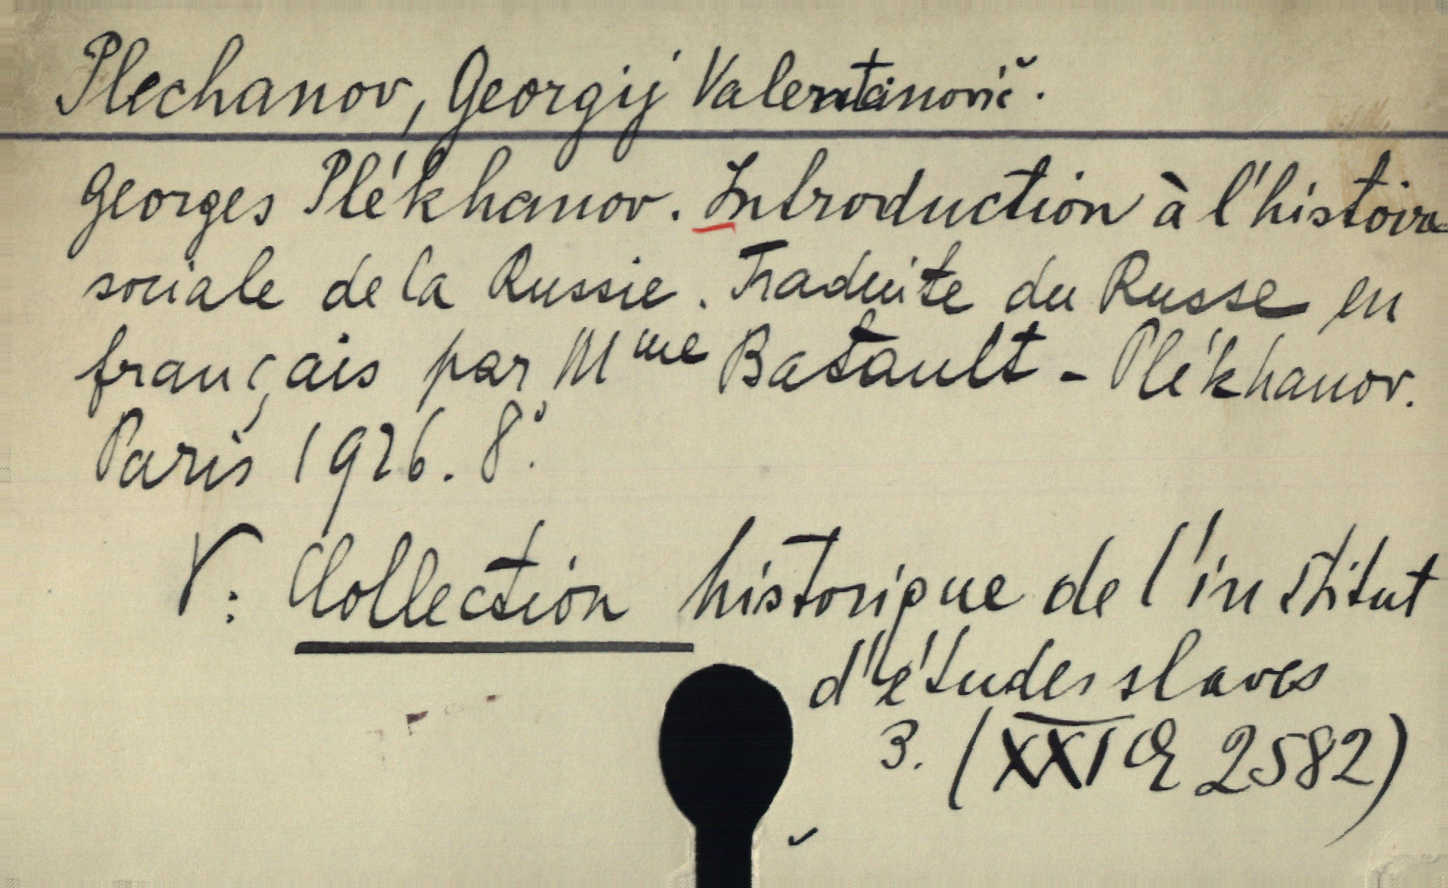 Plechanov, Georgij Valentinovič.
Georges Plékhanov. Introduction à l'histoire
sociale de la Russie. Traduite du Russe en
français par Mme Batault - Plékhanov.
Paris 1926. 8°.
V: Collection historique de l'institut
d'études slaves
3. (XXI Ch 2582)